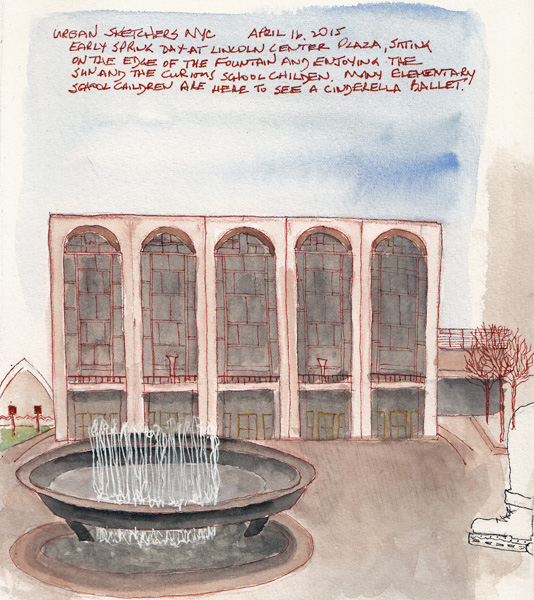 URBAN SKETCHERS NYC APRIL 16, 2015
EARLY SPRING DAY AT LINCOLN CENTER PLAZA, SITTING
ON THE EDGE OF THE FOUNTAIN AND ENJOYING THE
SUN AND THE CURIOUS SCHOOL CHILDEN. MANY ELEMENTARY
SCHOOL CHILDREN ARE HERE TO SEE A CINDERELLA BALLET.